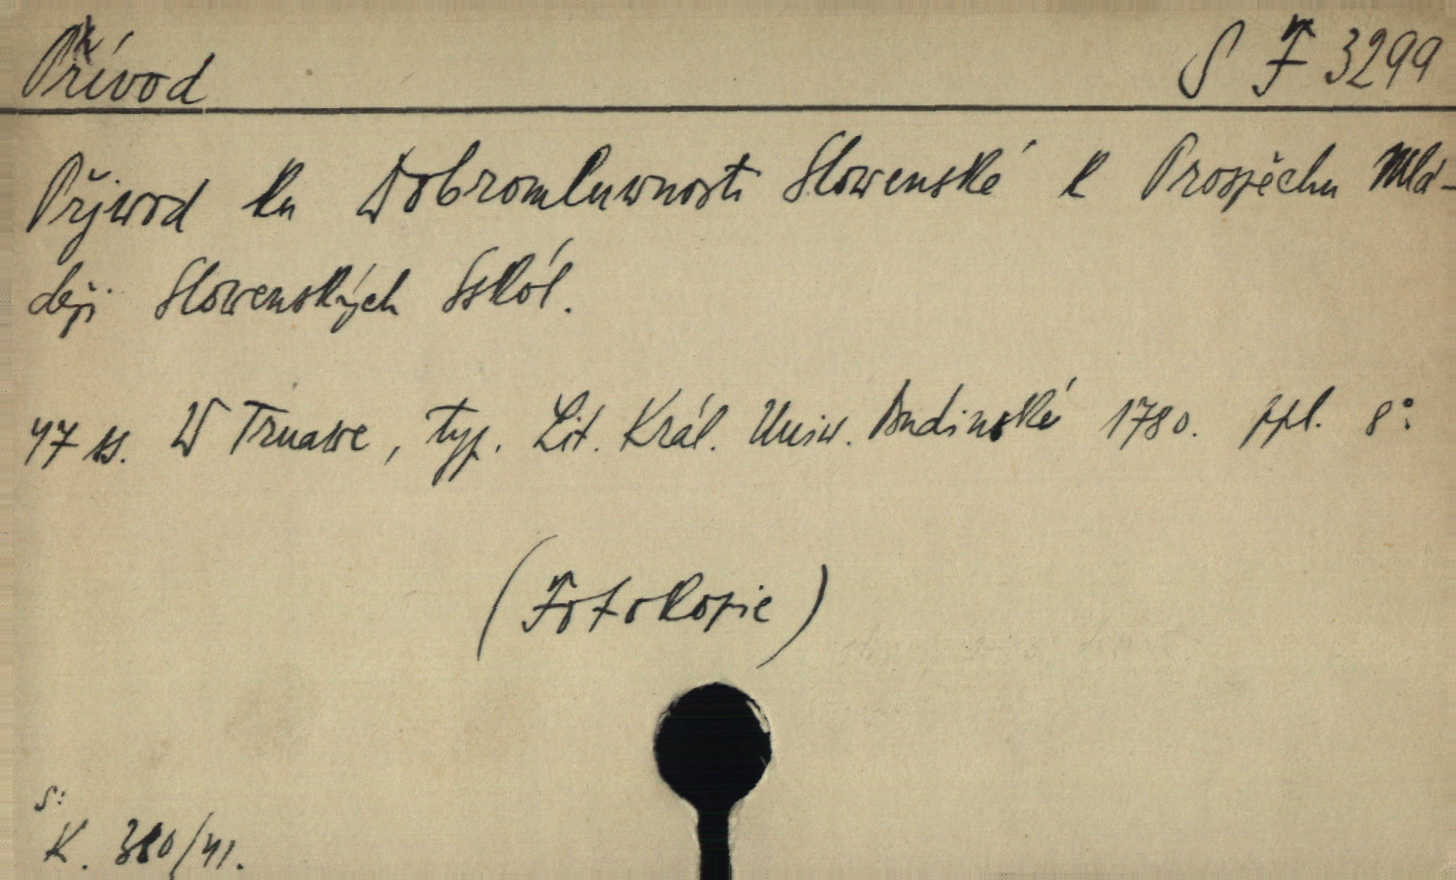 Přívod S F 3299
Přjwod ku Dobromluwnosti Slowenské k Prospěchu Mlá-
deži Slowenských Sskól.
47 ss. W Trnawe, typ. Lit. Král. Uniw. Budinské 1780. ppl. 8°:
(Fotokopie)
S:
K. 380/41.